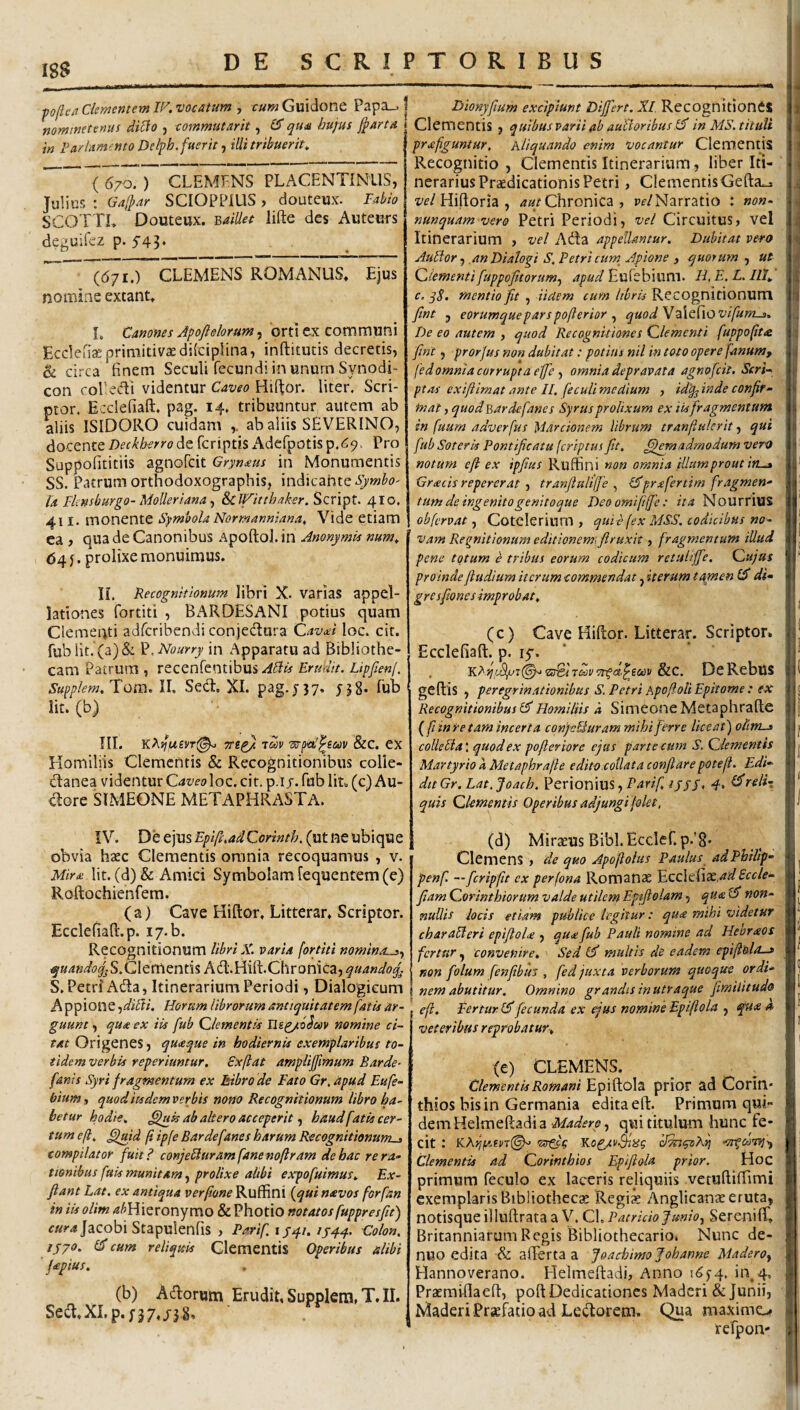 188
DE SCRIPTORIBUS
postea Clementem IV. vocatum , cum Guidone Papa,
nominetenus dicto , commutarit , & qua hujus sparta
in Parlamento Delph. fuerit , illi tribuerit.
( 670. ) CLEMENS PLACENTINUS,
Julius : Gaspar SCIOPPIUS , douteux. Fabio
SCOTTI, Douteux. Baillet liste des Auteurs
deguisez p. 543.
(671.) CLEMENS ROMANUS. Ejus
nomine extant.
I. Canones Apostolorum, orti ex communi
Ecclesiæ primitivæ disciplina, institutis decretis,
& circa finem Seculi secundi in unum Synodi-
con collecti videntur Caveo Histor. liter. Scri-
ptor. Ecclesiast. pag. 14. tribuuntur autem ab
aliis ISIDORO cuidam , ab aliis SEVERINO,
docente Deckherro de scriptis Adespotis p.69. Pro
Supposititiis agnoscit Grynæus in Monumentis
SS. Patrum orthodoxographis, indicante Symbo-
la Flensburgo-Molleriana, & Witthaker. Script. 410.
411. monente Symbola Normanniana. Vide etiam
ea , qua de Canonibus Apostol. in Anonymis num.
645. prolixe monuimus.
II. Recognitionum libri X. varias appel-
lationes sortiti , BARDESANI potius quam
Clementi adscribendi conjectura Cavæi loc. cit.
sub lit. (a) & P. Nourry in Apparatu ad Bibliothe-
cam Patrum , recensentibus Actis Erudit. Lipsiens.
Supplem. Tom. II. Sect. XI. pag. 537. 538. sub
lit. (b)
III. Κλήμεντ@- περὶ τῶν πράξεων &c. ex
Homiliis Clementis & Recognitionibus colle-
ctanea videntur Caveo loc. cit. p.15. sub lit. (c) Au-
ctore SIMEONE METAPHRASTA.
IV. De ejus Epist. ad Corinth. (ut ne ubique
obvia hæc Clementis omnia recoquamus , v.
Miræ lit. (d) & Amici Symbolam sequentem (e)
Rostochiensem.
(a) Cave Histor. Litterar. Scriptor.
Ecclesiast. p. 17.b.
Recognitionum libri X. varia sortiti nomina,
quandoq; S. Clementis Act. Hist. Chronica, quandoq;
S. Petri Acta, Itinerarium Periodi , Dialogicum
Appione, dicti. Horum librorum antiquitatem satis ar-
guunt , quæ ex iis sub Clementis Περιόδων nomine ci-
tat Origenes, quæque in hodiernis exemplaribus to-
tidem verbis reperiuntur. Exstat amplissimum Barde-
sanis Syri fragmentum ex Libro de Fato Gr. apud Euse-
bium, quod iisdem verbis nono Recognitionum libro ha-
betur hodie. Quis ab altero acceperit , haud satis cer-
tum est. Quid si ipse Bardesanes harum Recognitionum
compilator fuit? conjecturam sane nostram de hac re ra-
tionibus suis munitam, prolixe alibi exposuimus. Ex-
stant Lat. ex antiqua versione Ruffini (qui nævos forsan
in iis olim ab Hieronymo & Photio notatos suppressit)
cura Jacobi Stapulensis , Paris. 1541. 1544. Colon.
1570. & cum reliquis Clementis Operibus alibi
sæpius.
(b) Actorum Erudit. Supplem. T. II.
Sect. XI. p. 537. 538.
Dionysium excipiunt Dissert. XI. Recognitiones
Clementis , quibus varii ab auctoribus & in MS. tituli
præfiguntur. Aliquando enim vocantur Clementis
Recognitio , Clementis Itinerarium, liber Iti-
nerarius Prædicationis Petri , Clementis Gesta,
vel Historia , aut Chronica , vel Narratio : non-
nunquam vero Petri Periodi, vel Circuitus, vel
Itinerarium , vel Acta appellantur. Dubitat vero
Auctor, an Dialogi S. Petri cum Apione , quorum , ut
Clementi suppositorum, apud Eusebium. H. E. L. III.
c. 38. mentio fit , iidem cum libris Recognitionum
sint , eorumque pars posterior , quod Valesio visum.
De eo autem , quod Recognitiones Clementi suppositæ
sint , prorsus non dubitat : potius nil in toto opere sanum,
sed omnia corrupta esse , omnia depravata agnoscit. Scri-
ptas existimat ante II. seculi medium , idq; inde confir-
mat , quod Bardesanes Syrus prolixum ex iis fragmentum
in suum adversus Marcionem librum transtulerit , qui
sub Soteris Pontificatu scriptus sit. Quemadmodum vero
notum est ex ipsius Ruffini non omnia illum prout in
Græcis repererat , transtulisse , & præsertim fragmen-
tum de ingenito genitoque Deo omisisse : ita Nourrius
observat , Cotelerium , qui è sex MSS. codicibus no-
vam Regnitionum editionem struxit , fragmentum illud
pene totum è tribus eorum codicum retulisse. Cujus
proinde studium iterum commendat , iterum tamen & di-
gressiones improbat.
(c) Cave Histor. Litterar. Scriptor.
Ecclesiast. p. 15.
Κλήμεντ@- περὶ τῶν πράξεων &c. De Rebus
gestis , peregrinationibus S. Petri Apostoli Epitome : ex
Recognitionibus & Homiliis à Simeone Metaphraste
( si in re tam incerta conjecturam mihi ferre liceat ) olim
collecta : quod ex posteriore ejus parte cum S. Clementis
Martyrio à Metaphraste edito collata constare potest. Edi-
dit Gr. Lat. Joach. Perionius , Paris. 1555. 4. & reli-
quis Clementis Operibus adjungi solet.
(d) Miræus Bibl. Eccles. p. 8.
Clemens , de quo Apostolus Paulus ad Philip-
pens. -- scripsit ex persona Romanæ Ecclesiæ, ad Eccle-
siam Corinthiorum valde utilem Epistolam , quæ & non-
nullis locis etiam publice legitur : quæ mihi videtur
characteri epistolæ , quæ sub Pauli nomine ad Hebræos
fertur , convenire. Sed & multis de eadem epistola
non solum sensibus , sed juxta verborum quoque ordi-
nem abutitur. Omnino grandis in utraque similitudo
est. Fertur & secunda ex ejus nomine Epistola , quæ à
veteribus reprobatur.
(e) CLEMENS.
Clementis Romani Epistola prior ad Corin-
thios bis in Germania edita est. Primum qui-
dem Helmestadii a Madero , qui titulum hunc fe-
cit : Κλήμεντ@- πρὸς Κορινθίας ἐπιστολὴ πρώτη,
Clementis ad Corinthios Epistola prior. Hoc
primum seculo ex laceris reliquiis vetustissimi
exemplaris Bibliothecæ Regiæ Anglicanæ eruta,
notisque illustrata a V. Cl. Patricio Junio, Sereniss.
Britanniarum Regis Bibliothecario. Nunc de-
nuo edita & asserta a Joachimo Johanne Madero,
Hannoverano. Helmestadi, Anno 1654. in 4.
Præmissa est, post Dedicationes Maderi & Junii,
Maderi Præfatio ad Lectorem. Qua maxime
respon-